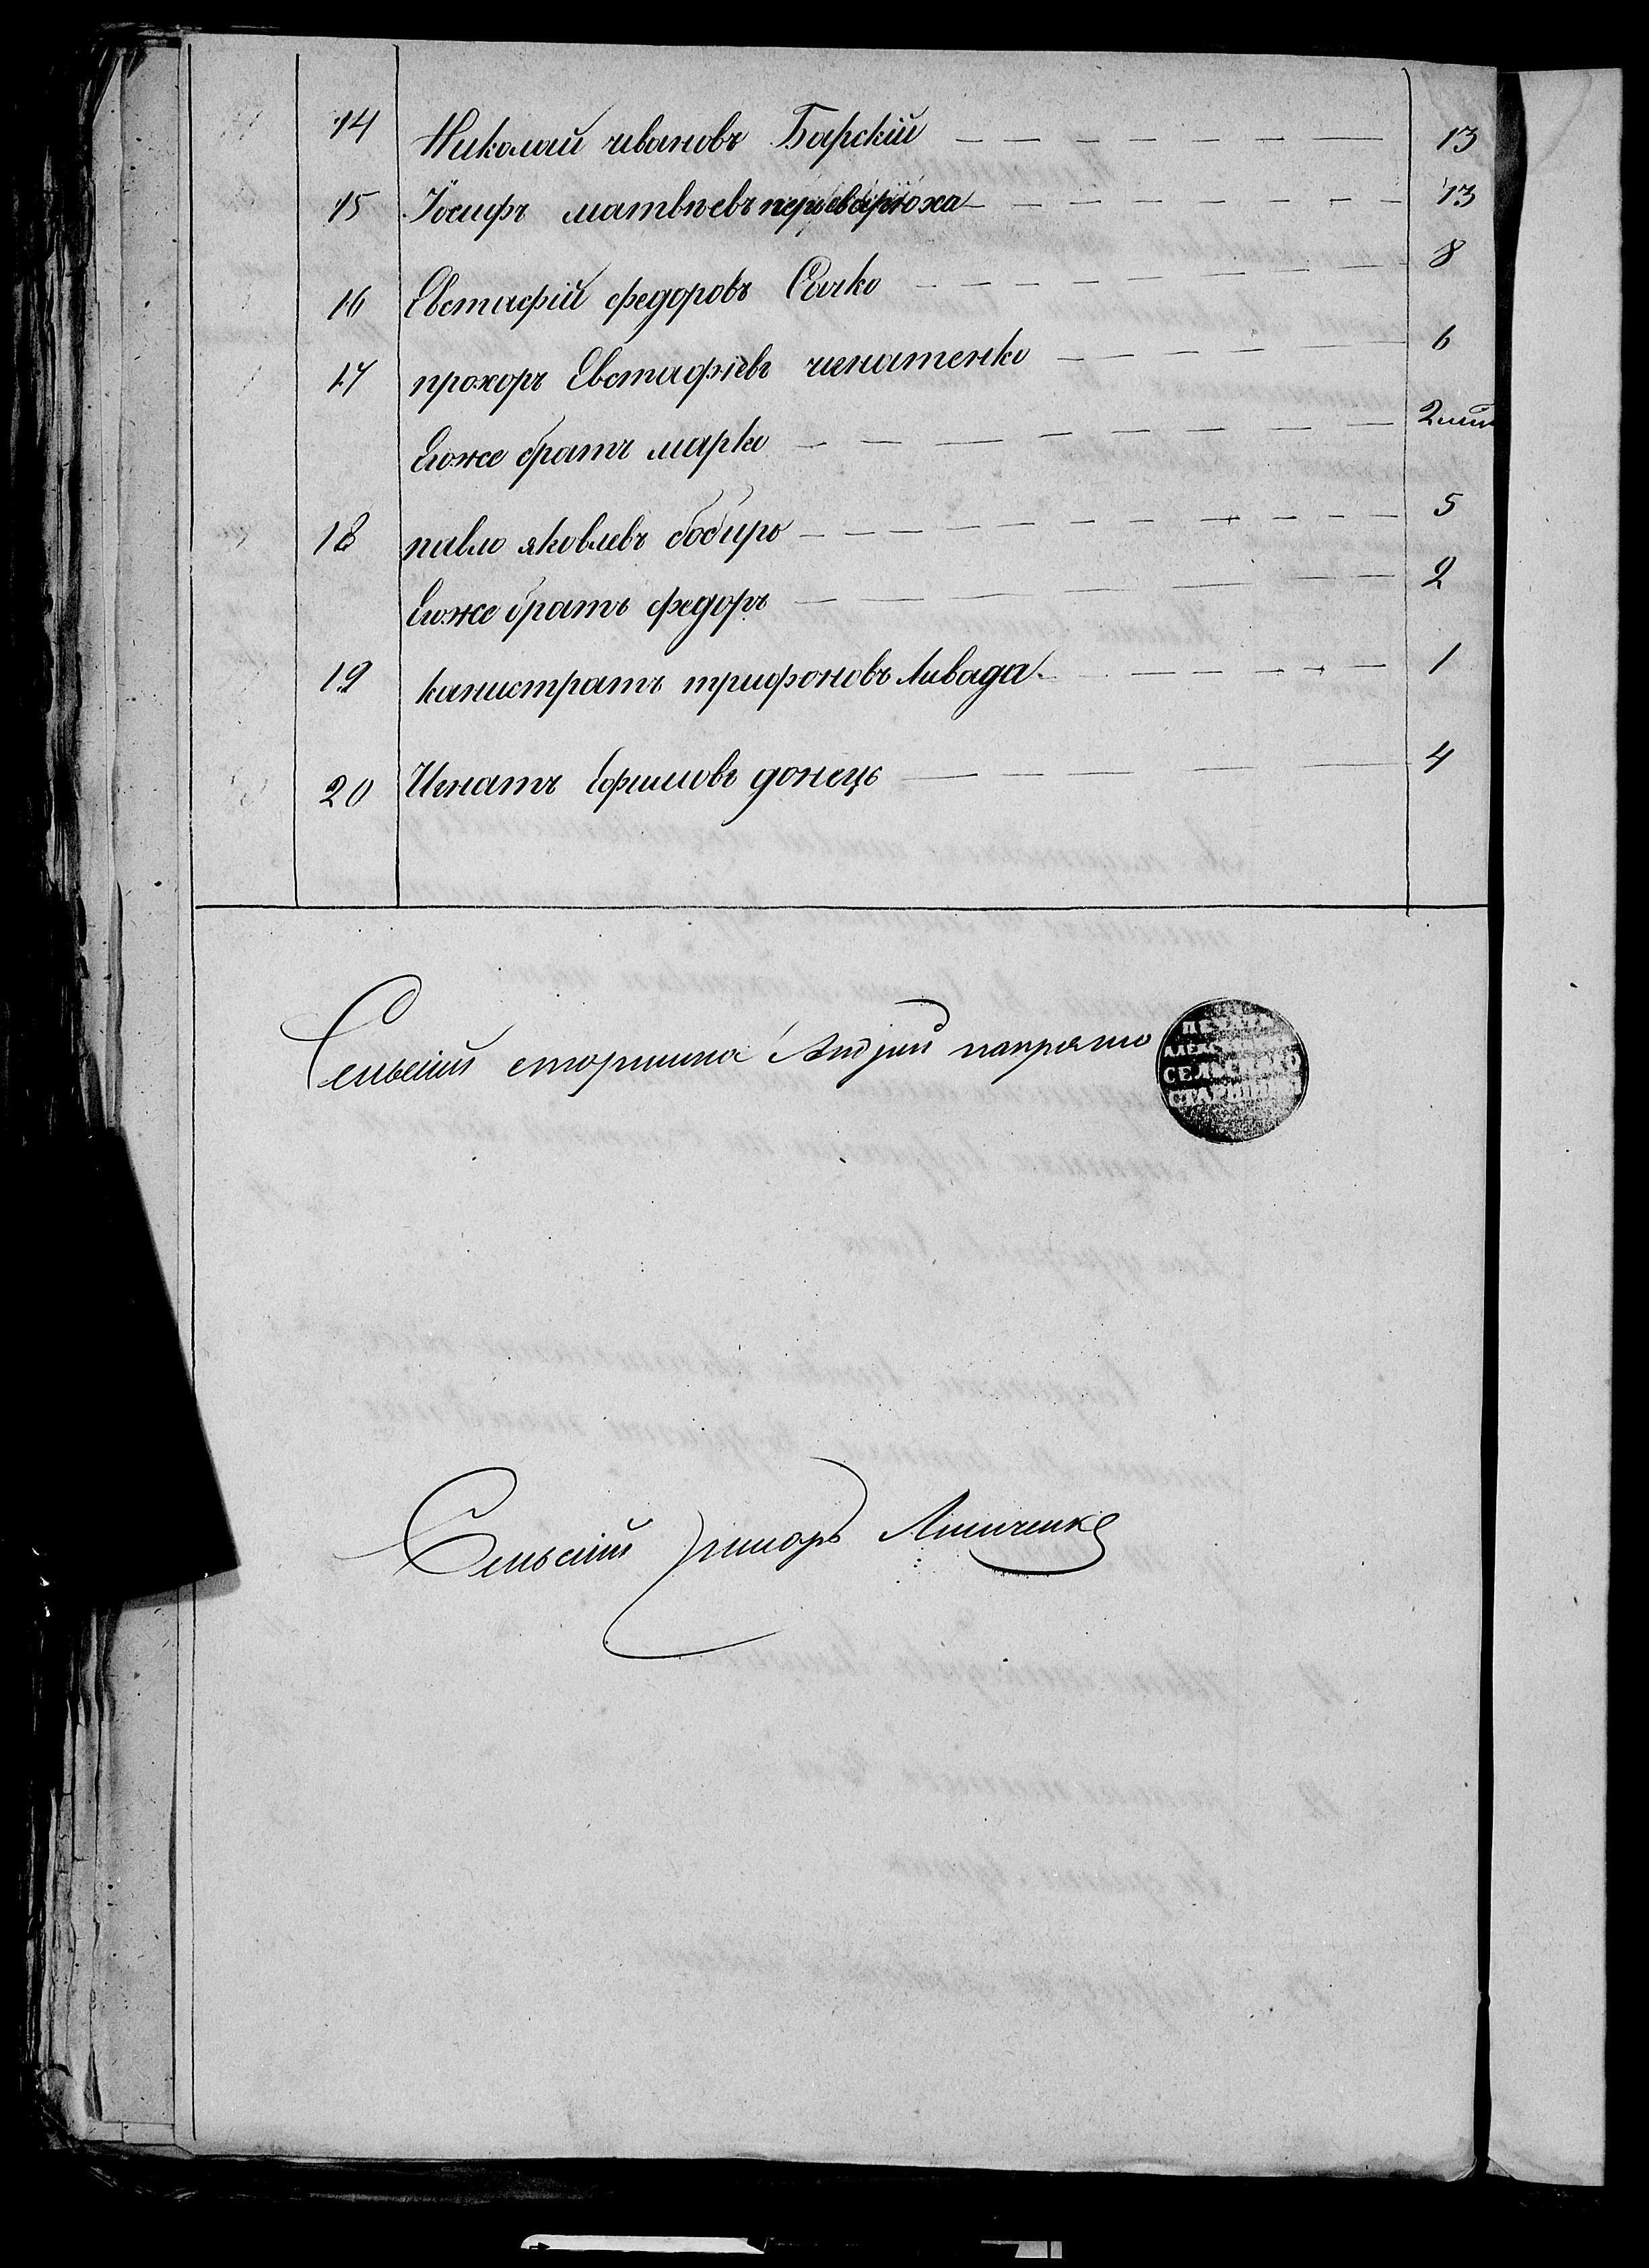 14 Николай ивановъ Барскій — 13
15 Іосифъ матвѣевъ перевертоха — 13
16 Евстафій федоровъ Сачко — 8
17 прохоръ Евстафіевъ игнатенко — 6
Єгоже братъ марко — 2
18 павло яковлевъ бобиръ — 5
Єгоже братъ федоръ — 2
19 калистратъ трифоновъ Ливада — 1
20 Игнатъ Ефимовъ донецъ — 4
Сельскій старшина Андрій
ПЕЧАТЬ
СЕЛЬСКАГО
СТАРШИНЫ
Сельскій писарь